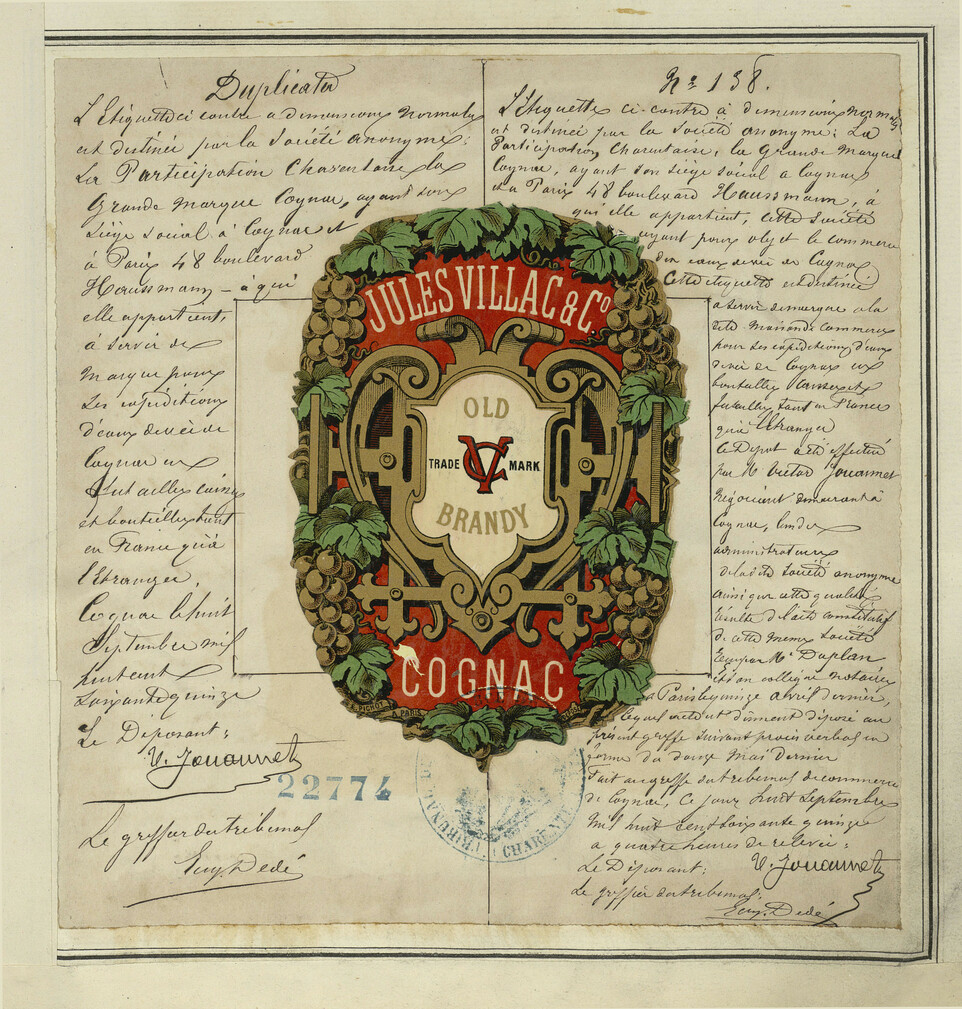 Duplicata
L'Etiquette ci contre a dimensions normales
est destinée par la Société anonyme:
La Participation Charentaise la
Grande Marque Cognac, ayant son
Siège social à Cognac et
à Paris 48 boulevard
Haussmann - à qui
elle appartient,
à servir de
marque pour
les expéditions
d'eaux de vie de
Cognac en
futailles caisses
et bouteilles tant
en France qu'à
l'Etranger.
Cognac le huit
Septembre mil
huit cent
soixante quinze
Le Déposant:
V. Jouannet
22774
Le greffier du tribunal
Eug. Dedé
N° 138.
L'Etiquette ci-contre à dimensions normales
est destinée par la Société anonyme: La
Participation Charentaise, la Grande Marque
Cognac, ayant son siège social a Cognac
et a Paris 48 boulevard Haussmann, à
qui elle appartient, cette Société
ayant pour objet le commerce
des eaux de vie de Cognac.
Cette étiquette est destinée
a servir de marque a la
dite maison de commerce
pour ses expéditions d'eaux
de vie de Cognac en
bouteilles caisses et
futailles tant en France
qu'à l'Etranger
Ce Dépot a été effectué
par M. Victor Jouannet
Négociant demeurant à
Cognac, l'un des
administrateurs
de la dite Société anonyme
ainsi que cette qualité
résulte de l'acte constitutif
de cette meme Société
reçu par Me Duplan
et son collègue notaires
a Paris le quinze avril dernier,
lequel acte est dûment déposé au
présent greffe suivant procès verbal en
forme du douze Mai dernier
Fait au greffe du tribunal de commerce
de Cognac, ce jour huit Septembre
mil huit cent soixante quinze
a quatre heures de relevée:
Le Déposant: V. Jouannet
Le greffier du tribunal:
Eug. Dedé
JULES VILLAC & Co.
OLD
TRADE VC MARK
BRANDY
COGNAC
PICHOT A PARIS
TRIBUNAL DE
CHARENTE